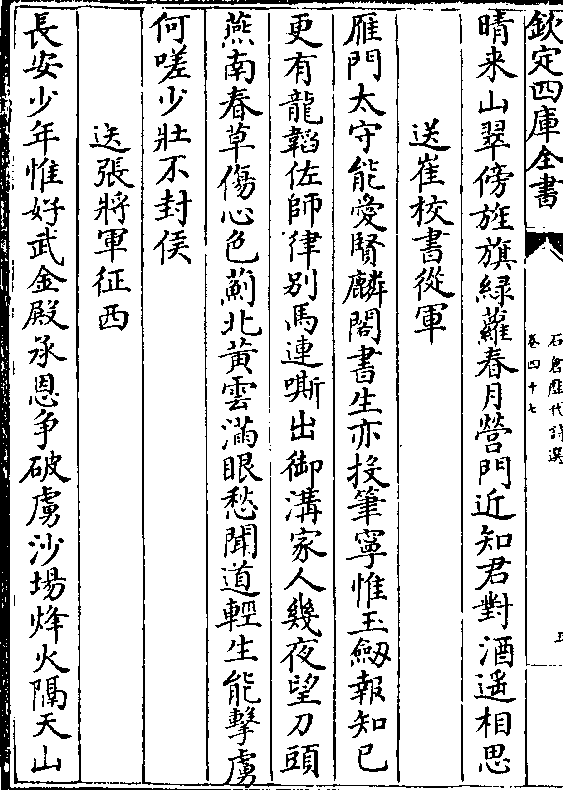 欽定四庫全書
石倉歷代詩選
卷四十七
五
晴来山翠傍旌旗綠蘿春月營門近知君對酒遥相思
送崔校書從軍
雁門太守能愛賢麟閣書生亦投筆寧惟玉劒報知已
更有龍韜佐師律别馬連嘶出御溝家人幾夜望刀頭
燕南春草傷心色薊北黄雲滿眼愁聞道輕生能擊虜
何嗟少壯不封侯
送張將軍征西
長安少年惟好武金殿承恩争破虜沙場烽火隔天山